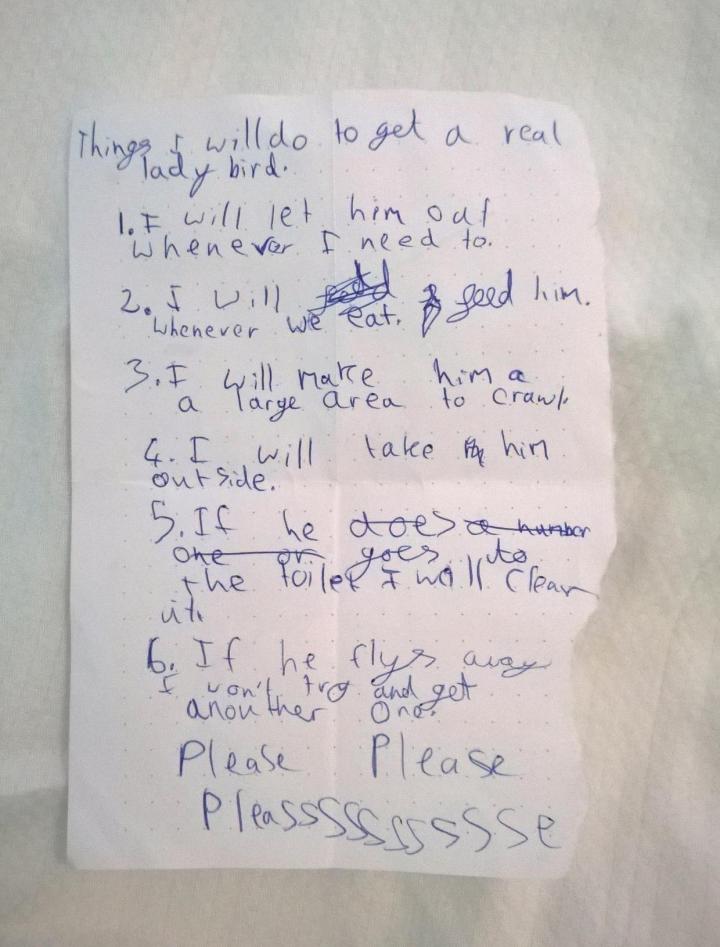 Things I will do to get a real
lady bird.
1. I will let him out
whenever I need to.
2. I will feed him.
whenever we eat.
3. I will make him a
a large area to crawl.
4. I will take him
outside.
5. If he does a number
one or goes to
the toilet I will clean
it.
6. If he flys away
I won't try and get
anouther one.
Please Please
Pleasssssssssse